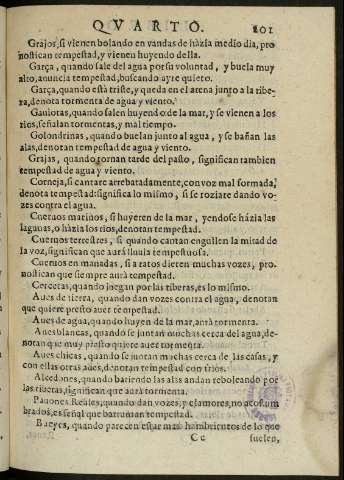 QVARTO. 201
Grajos, si vienen bolando en vandas de hàzia medio dia, pro
nostican tempestad, y vienen huyendo della.
Garça, quando sale del agua por su voluntad, y buela muy
alto, anuncia tempestad, buscando ayre quieto.
Garça, quando está triste, y queda en el arena junto a la ribe
ra, denota tormenta de agua y viento.
Gauiotas, quando salen huyendo de la mar, y se vienen a los
rios, señalan tormentas, y mal tiempo.
Golondrinas, quando buelan junto al agua, y se bañan las
alas, denotan tempestad de agua y viento.
Grajas, quando tornan tarde del pasto, significan tambien
tempestad de agua y viento.
Corneja, si cantare arrebatadamente, con voz mal formada,
denota tempestad: significa lo mismo, si se roziare dando vo
zes contra el agua.
Cueruos marinos, si huyeren de la mar, yendose házia las
lagunas, o házia los rios, denotan tempestad.
Cueruos terrestres, si quando cantan engullen la mitad de
la voz, significan que aurá lluuia tempestuosa.
Cueruos en manadas, si a ratos dieren muchas vozes, pro
nostican que siempre aurà tempestad.
Cercetas, quando juegan por las riberas, es lo mismo.
Aues de tierra, quando dan vozes contra el agua, denotan
que quiere presto auer tempestad.
Aues de agua, quando huyen de la mar, aurà tormenta.
Aues blancas, quando se juntan muchas cerca del agua, de-
notan que muy presto quiere auer tormenta.
Aues chicas, quando se juntan muchas cerca de las casas, y
con ellas otras aues, denotan tempestad con frios.
Alcedones, quando batiendo las alas andan reboleando por
las riberas, significan que aurà tormenta.
Pauones Reales, quando dan vozes, y clamores, no acostum
brados, es señal que barruntan tempestad.
Bueyes, quando parecen estar mas hambrientos de lo que
Cc suelen,